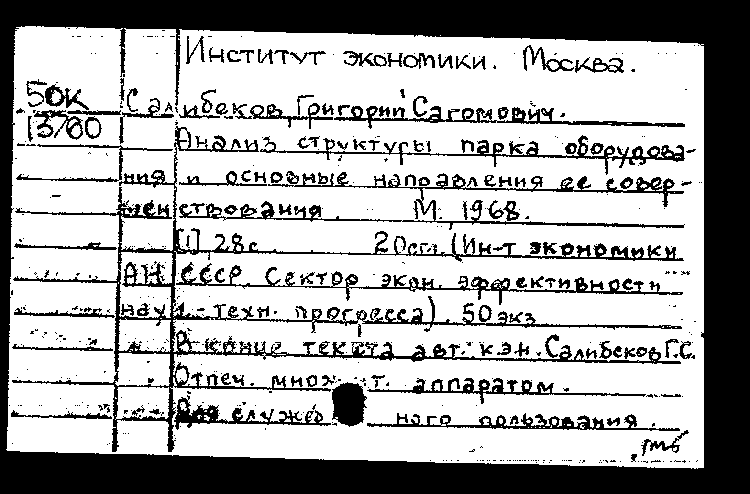 Институт экономики. Москва.
50К Салибеков, Григорий Сагомович.
13/60 Анализ структуры парка оборудова-
ния и основные направления ее совер-
шенствования. М., 1968.
[1], 28 с. 20 см. (Ин-т экономики
АН СССР. Сектор экон. эффективности
науч.-техн. прогресса). 50 экз
В конце текста авт.: к.э.н. Салибеков Г.С.
Отпеч. множ. т. аппаратом.
Для служебного пользования.